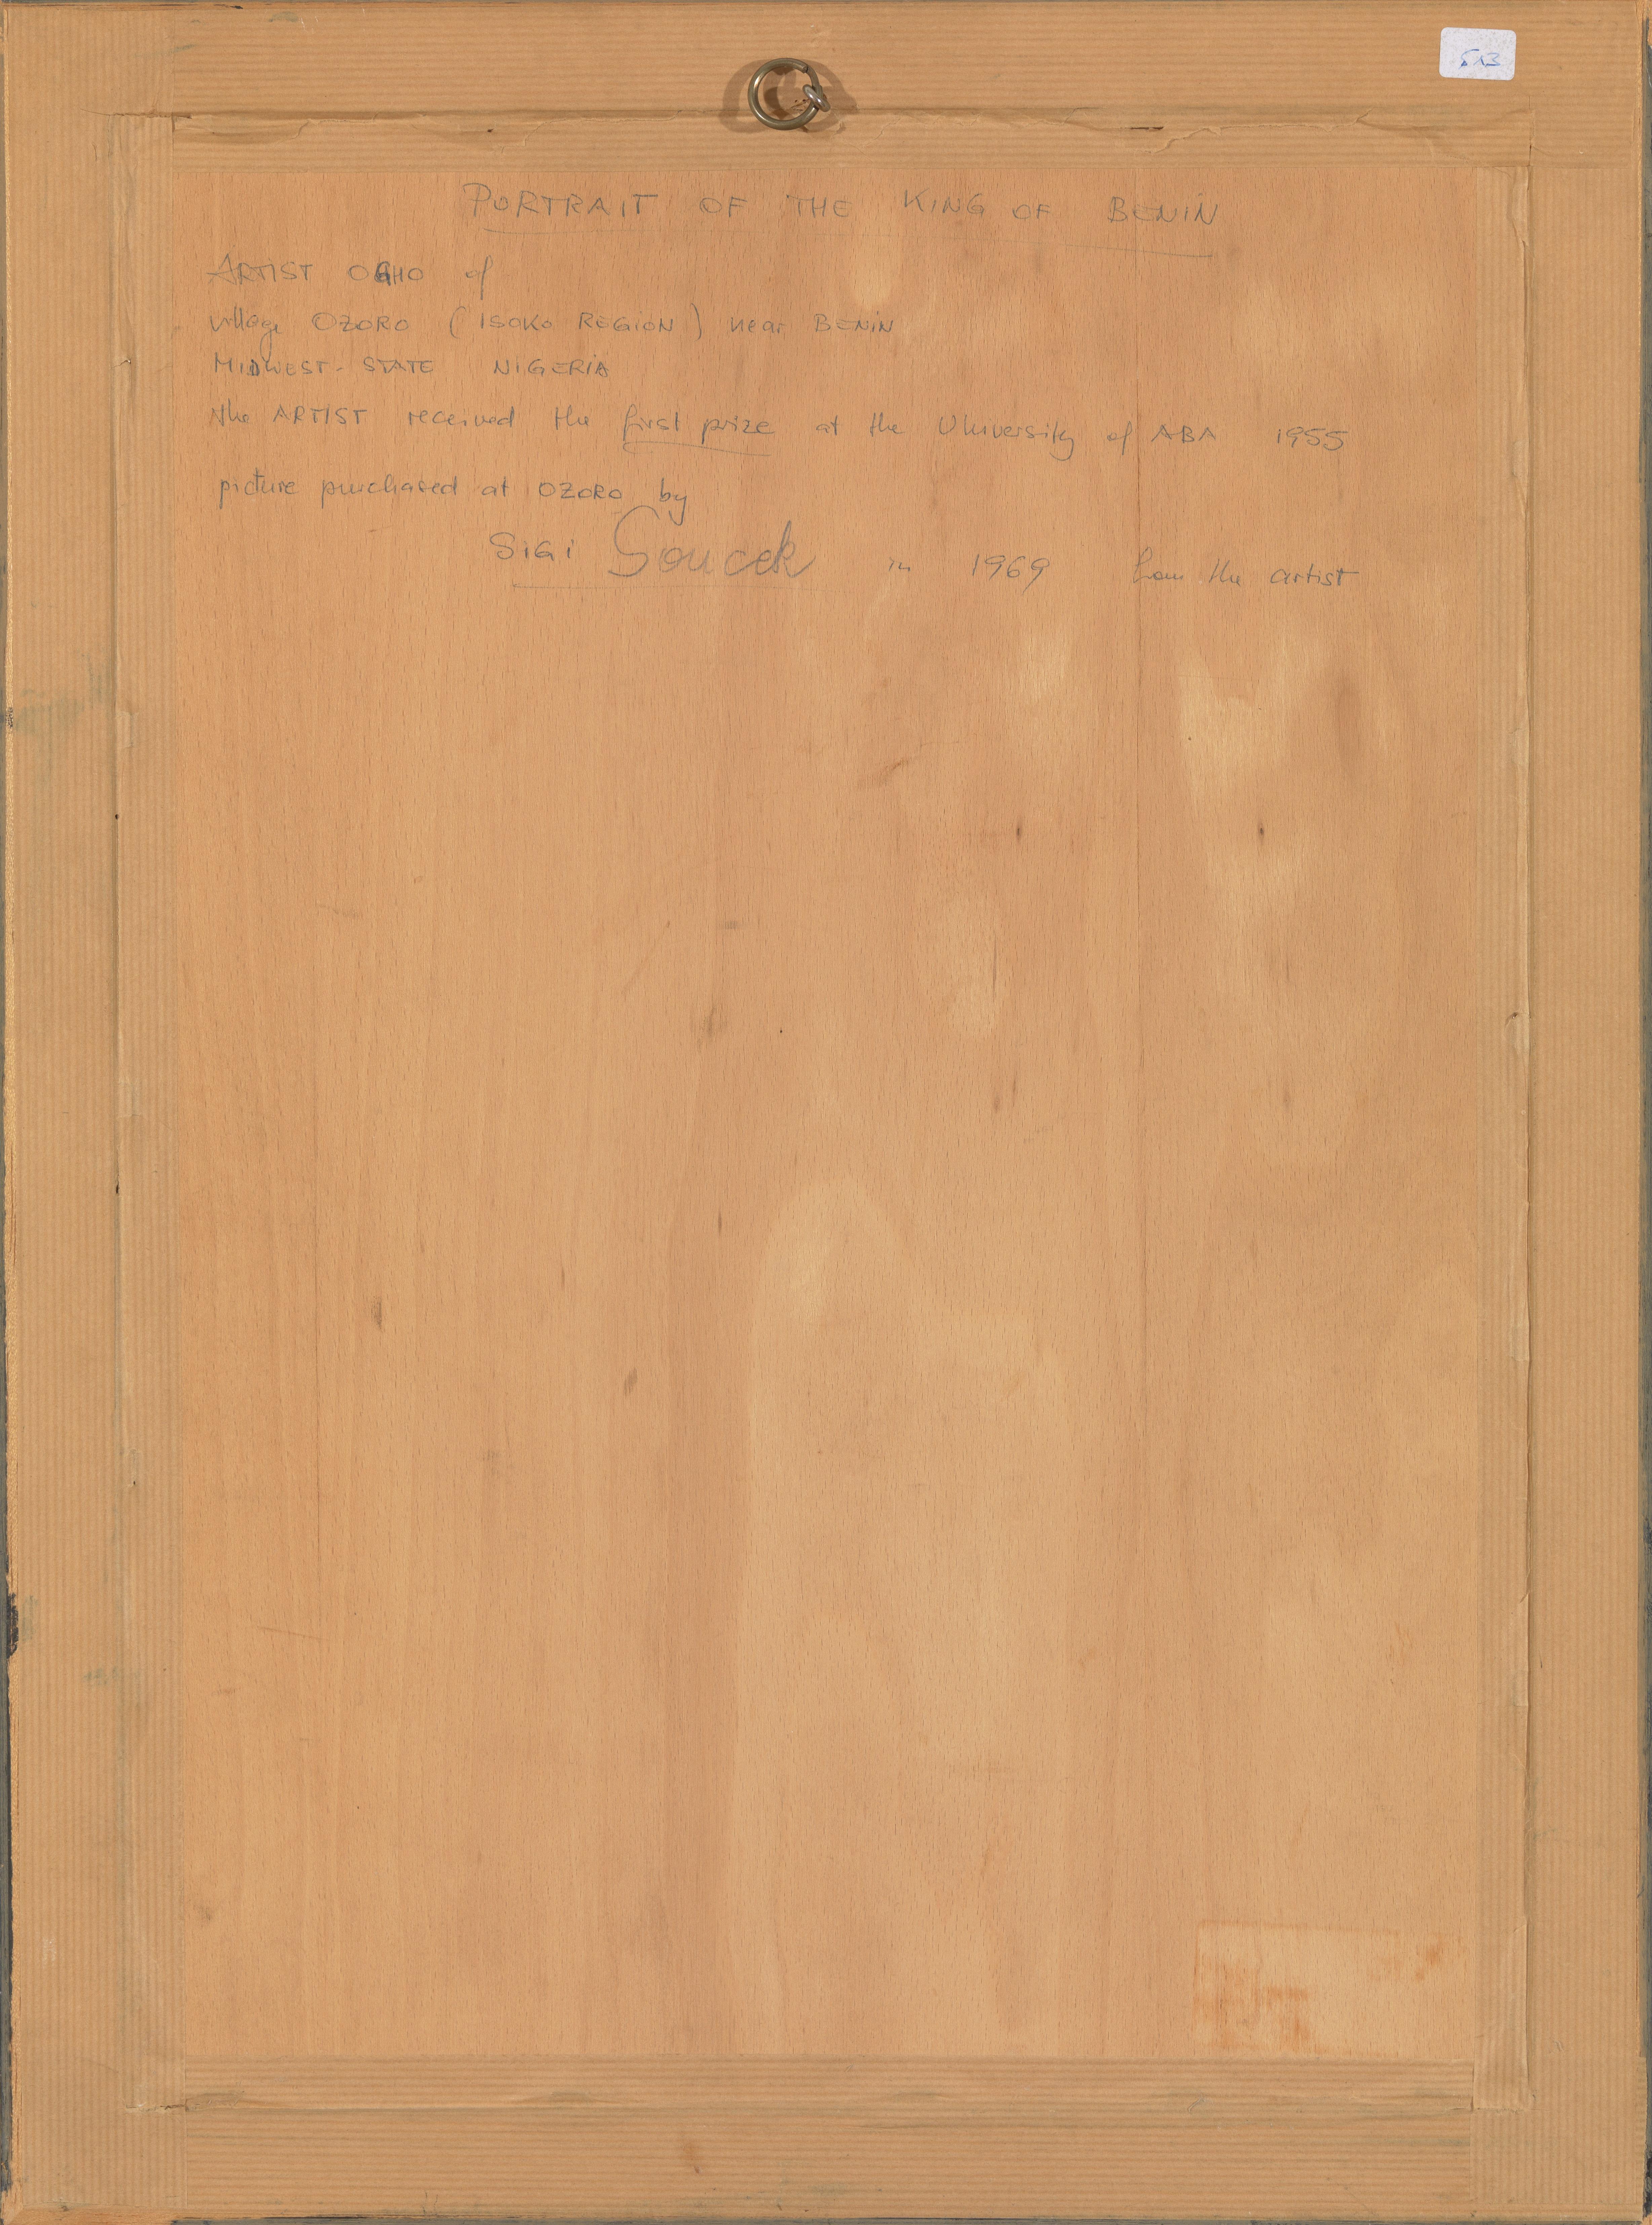 PORTRAIT OF THE KING OF BENIN
ARTIST OGHO of
village OZORO (ISOKO REGION) near BENIN
MIDWEST-STATE NIGERIA
the ARTIST received the first prize at the University of ABA 1955
picture purchased at OZORO by
SIGI Soucek in 1969 from the artist